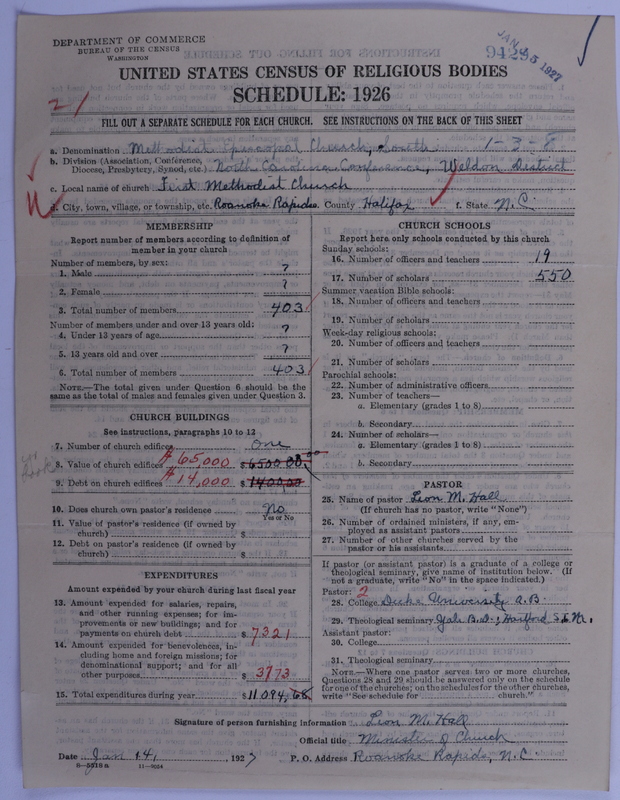 DEPARTMENT OF COMMERCE
BUREAU OF THE CENSUS
WASHINGTON
JAN 15 1927
UNITED STATES CENSUS OF RELIGIOUS BODIES
SCHEDULE: 1926
21
FILL OUT A SEPARATE SCHEDULE FOR EACH CHURCH. SEE INSTRUCTIONS ON THE BACK OF THIS SHEET
a. Denomination Methodist Episcopal Church, South 1-3-8
b. Division (Association, Conference, Diocese, Presbytery, Synod, etc.) North Carolina Conference, Weldon District
c. Local name of church First Methodist Church
d. City, town, village, or township, etc. Roanoke Rapids. County Halifax f. State N.C.
MEMBERSHIP
Report number of members according to definition of
member in your church
Number of members, by sex:
1. Male ?
2. Female ?
3. Total number of members 403
Number of members under and over 13 years old:
4. Under 13 years of age ?
5. 13 years old and over ?
6. Total number of members 403
NOTE.—The total given under Question 6 should be the
same as the total of males and females given under Question 3.
CHURCH BUILDINGS
See instructions, paragraphs 10 to 12
7. Number of church edifices one
8. Value of church edifices #65,000 $6500 00
9. Debt on church edifices #14,000 $1400,00
10. Does church own pastor's residence No
Yes or No
11. Value of pastor's residence (if owned by
church) $
12. Debt on pastor's residence (if owned by
church) $
EXPENDITURES
Amount expended by your church during last fiscal year
13. Amount expended for salaries, repairs,
and other running expenses; for im-
provements or new buildings; and for
payments on church debt $ 7321
14. Amount expended for benevolences, in-
cluding home and foreign missions; for
denominational support; and for all
other purposes $ 3773
15. Total expenditures during year $11094,68
CHURCH SCHOOLS
Report here only schools conducted by this church
Sunday schools:
16. Number of officers and teachers 19
17. Number of scholars 550
Summer vacation Bible schools:
18. Number of officers and teachers
19. Number of scholars
Week-day religious schools:
20. Number of officers and teachers
21. Number of scholars
Parochial schools:
22. Number of administrative officers
23. Number of teachers—
a. Elementary (grades 1 to 8)
b. Secondary
24. Number of scholars—
a. Elementary (grades 1 to 8)
b. Secondary
PASTOR
25. Name of pastor Leon M. Hall
(If church has no pastor, write "None")
26. Number of ordained ministers, if any, em-
ployed as assistant pastors
27. Number of other churches served by the
pastor or his assistants
If pastor (or assistant pastor) is a graduate of a college or
theological seminary, give name of institution below. (If
not a graduate, write "No" in the space indicated.)
Pastor: 2
28. College Duke University A.B.
29. Theological seminary Yale B.D.; Hartford S.T.M.
Assistant pastor:
30. College
31. Theological seminary
NOTE.—Where one pastor serves two or more churches,
Questions 28 and 29 should be answered only on the schedule
for one of the churches; on the schedules for the other churches,
write "See schedule for church."
Signature of person furnishing information Leon M. Hall
Official title Minister of Church
Date Jan 14, 1927 P. O. Address Roanoke Rapids, N.C.
8—5519 a 11—9024